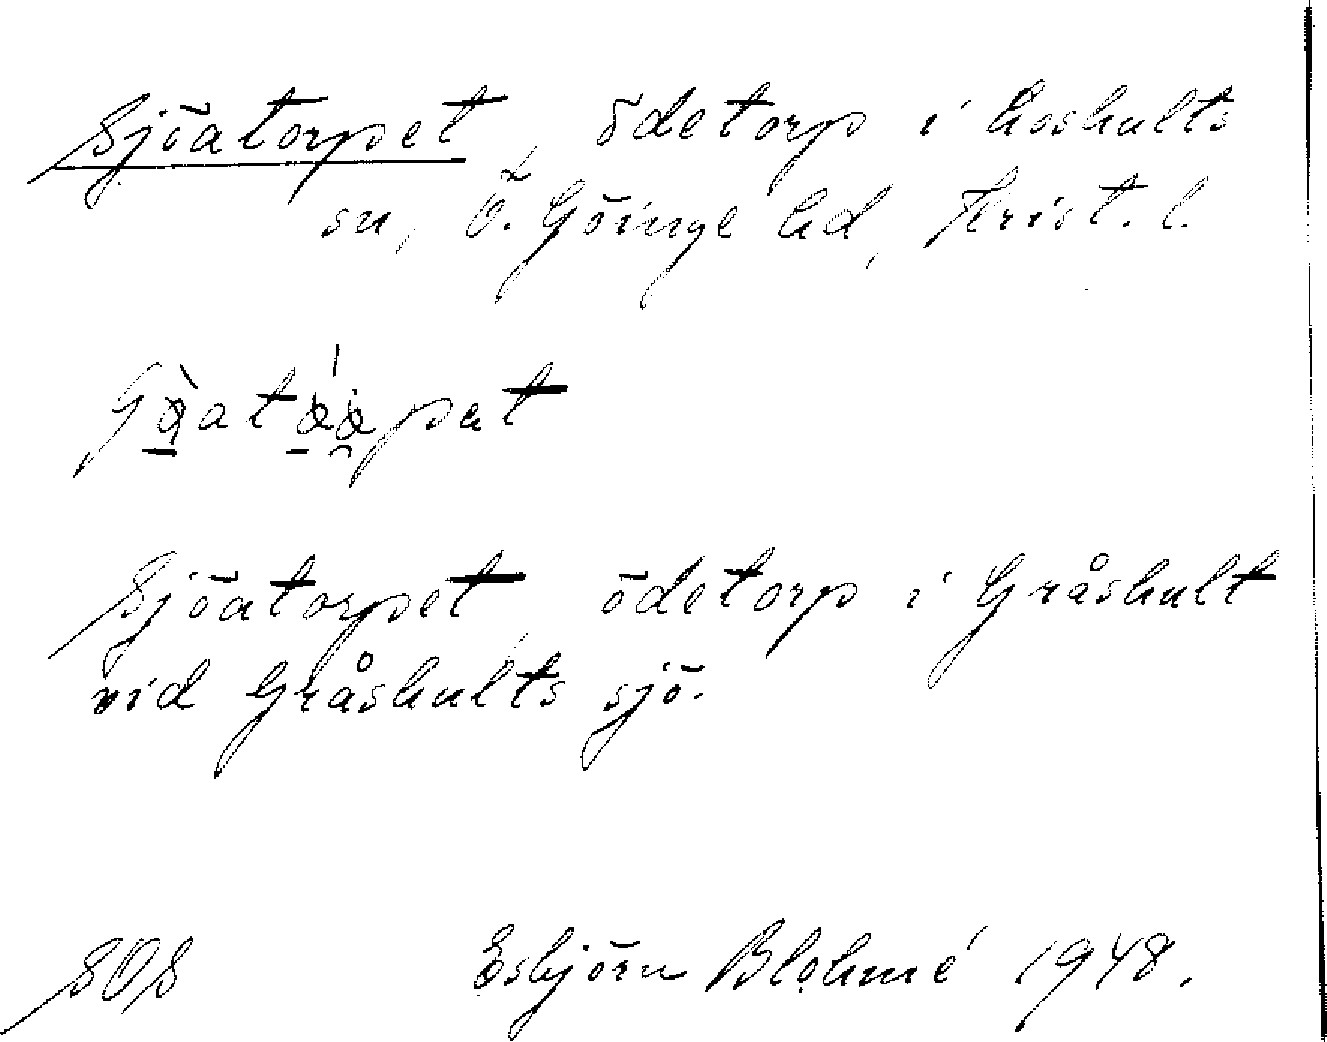 Sjöatorpet, ödetorp i Loshults
sn, Ö. Göinge hd, Krist. l.
Sjöatorpet, ödetorp i Gråshult
vid Gråshults sjö.
SOS Esbjörn Blohmé 1948.